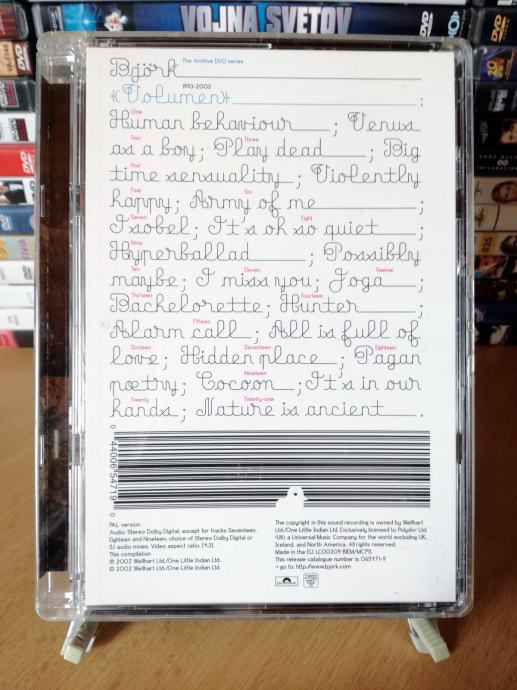 VOJNA SVETOV
Björk The Archive DVD series
1993-2003
«Volumen» ;
One
Human behaviour ; Venus
Two Three
as a boy; Play dead ; Big
Four
time sensuality ; Violently
Five Six
happy; Army of me ;
Seven Eight
Isobel; It's oh so quiet ;
Nine
Hyperballad ; Possibly
Ten Eleven Twelve
maybe; I miss you; Joga ;
Thirteen Fourteen
Bachelorette; Hunter ;
Fifteen
Alarm call ; All is full of
Sixteen Seventeen Eighteen
love; Hidden place ; Pagan
Nineteen
poetry; Cocoon ; It's in our
Twenty Twenty-one
hands; Nature is ancient .
0 44006 54719 0
PAL version
Audio: Stereo Dolby Digital, except for tracks Seventeen,
Eighteen and Nineteen: choice of Stereo Dolby Digital or
5.1 audio mixes. Video aspect ratio: (4:3).
This compilation
℗ 2002 Wellhart Ltd./One Little Indian Ltd.
© 2002 Wellhart Ltd./One Little Indian Ltd.
The copyright in this sound recording is owned by Wellhart
Ltd./One Little Indian Ltd. Exclusively licensed to Polydor Ltd.
(UK) a Universal Music Company for the world excluding UK,
Iceland, and North America. All rights reserved.
Made in the EU. LC00309 BIEM/MCPS.
This release catalogue number is 065471-9
→ go to: http://www.bjork.com